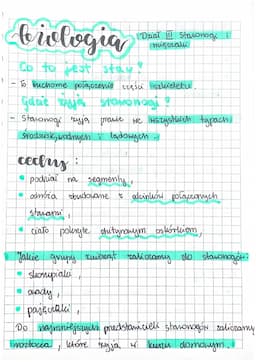 biologia
Dział III Stawonogi i
mięczaki
Co to jest staw?
- To ruchome połączenie części szkieletu.
Gdzie żyją stawonogi?
- Stawonogi żyją prawie we wszystkich typach
środowisk wodnych i lądowych.
cechy:
• podział na segmenty,
• odnóża zbudowane z odcinków połączonych
stawami,
• ciało pokryte chitynowym oskórkiem,
Jakie grupy zwierząt zaliczamy do stawonogów:
• skorupiaki,
• owady,
• pajęczaki,
Do najmniejszych przedstawicieli stawonogów zaliczamy
roztocza, które żyją w kurzu domowym.